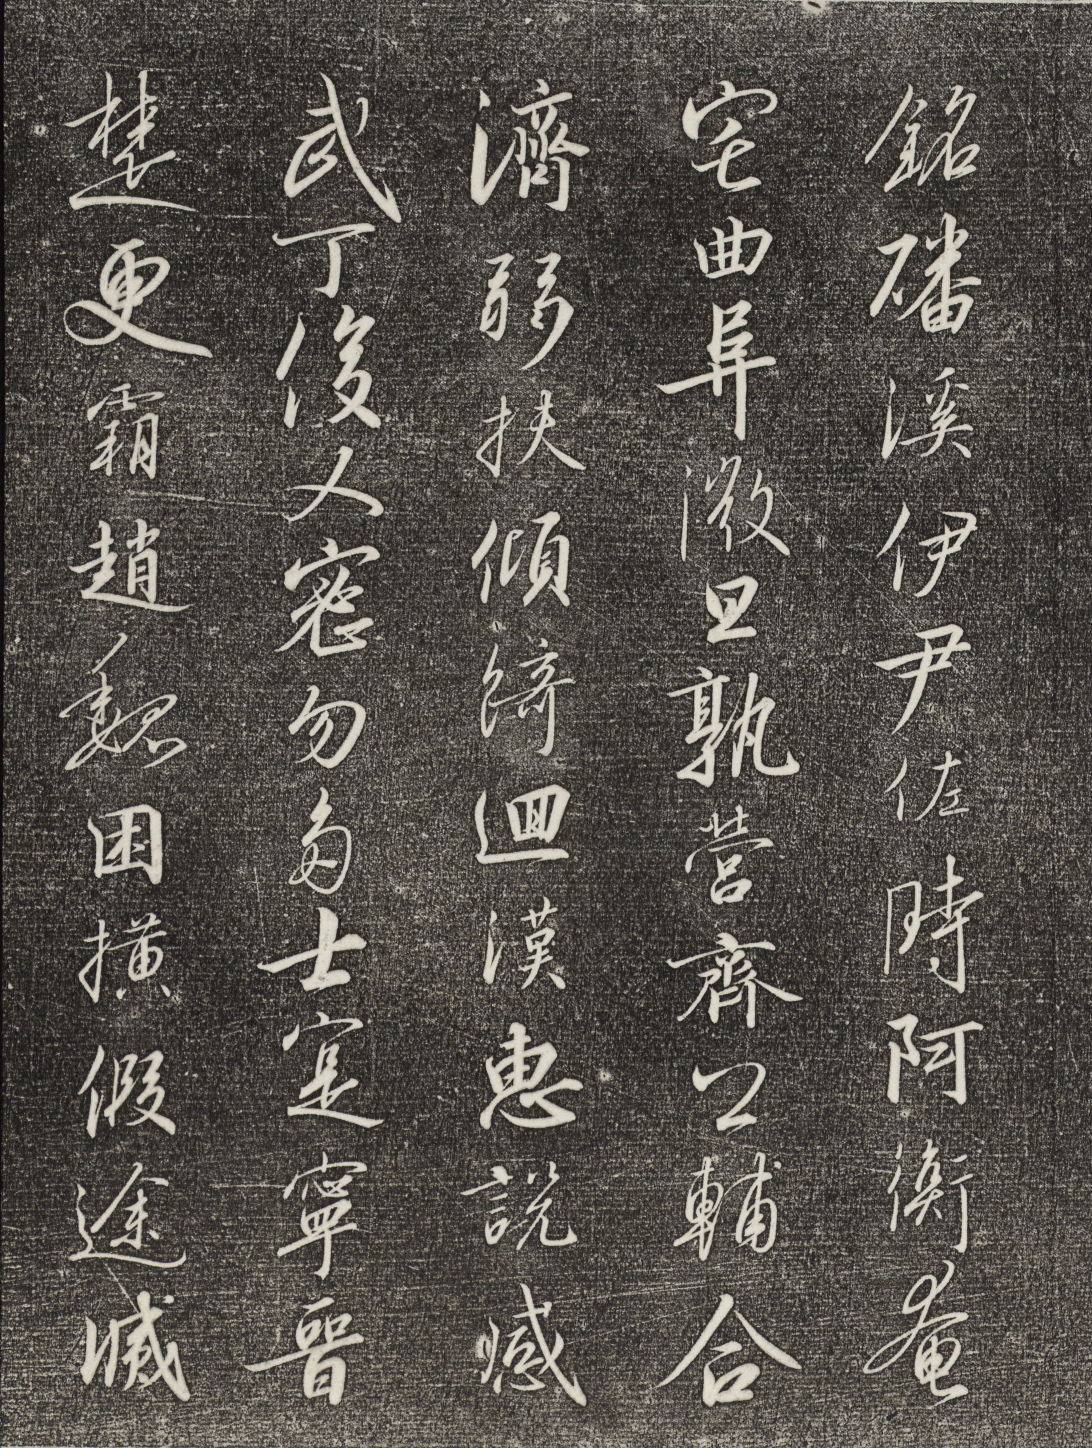 銘磻溪伊尹佐時阿衡奄
宅曲阜微旦孰營齊公輔合
濟弱扶傾綺迴漢惠說感
武丁俊乂密勿多士寔寧晉
楚更霸趙魏困橫假途滅